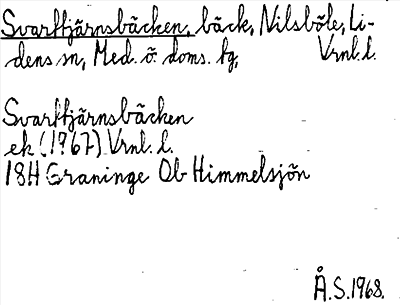 Svarttjärnsbäcken, bäck, Nilsböle, Li-
dens sn, Med. ö. doms. tg, Vrnl. l.
Svarttjärnsbäcken
ek (1967) Vrnl. l.
18H Graninge Ob Himmelsjön
Å.S. 1968.